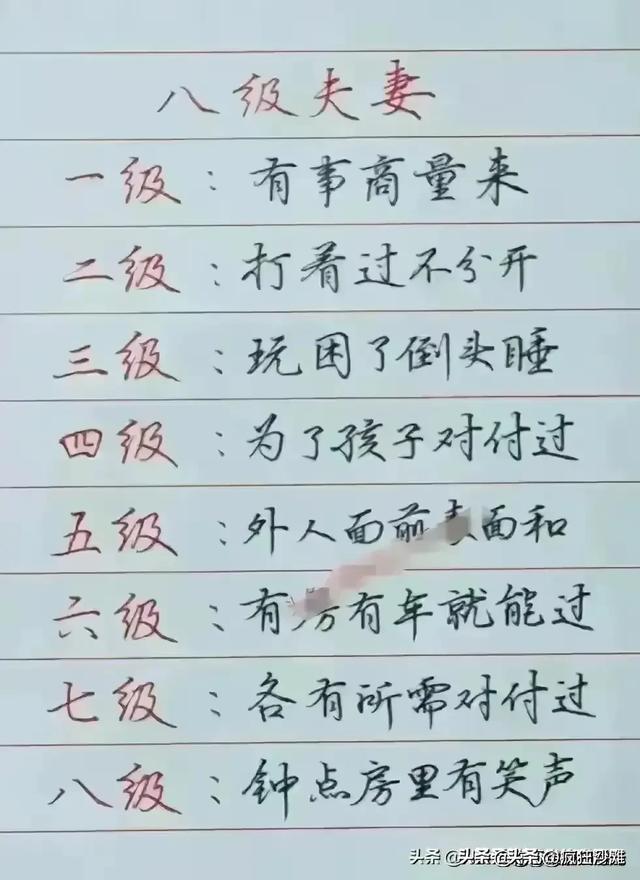 八级夫妻
一级：有事商量来
二级：打着过不分开
三级：玩困了倒头睡
四级：为了孩子对付过
五级：外人面前表面和
六级：有房有车就能过
七级：各有所需对付过
八级：钟点房里有笑声
头条 @疯狂